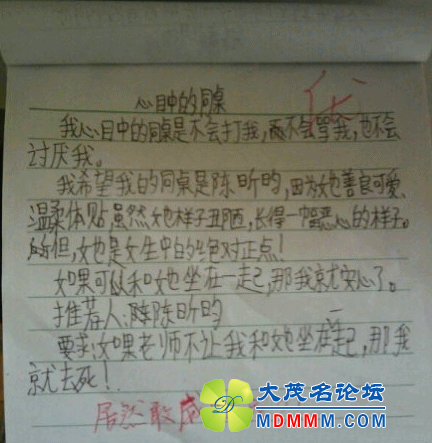 心目中的同桌
优
我心目中的同桌是不会打我,而不会骂我,也不会
讨厌我。
我希望我的同桌是陈昕昀,因为她善良可爱、
温柔体贴,虽然她样子丑陋,长得一幅恶心的样子。
但,她也是女生中的绝对正点!
如果可以和她坐在一起,那我就安心了。
推荐人:陈昕昀
要求:如果老师不让我和她坐在一起,那我
就去死!
居然敢
大茂名论坛
MDMMM.COM